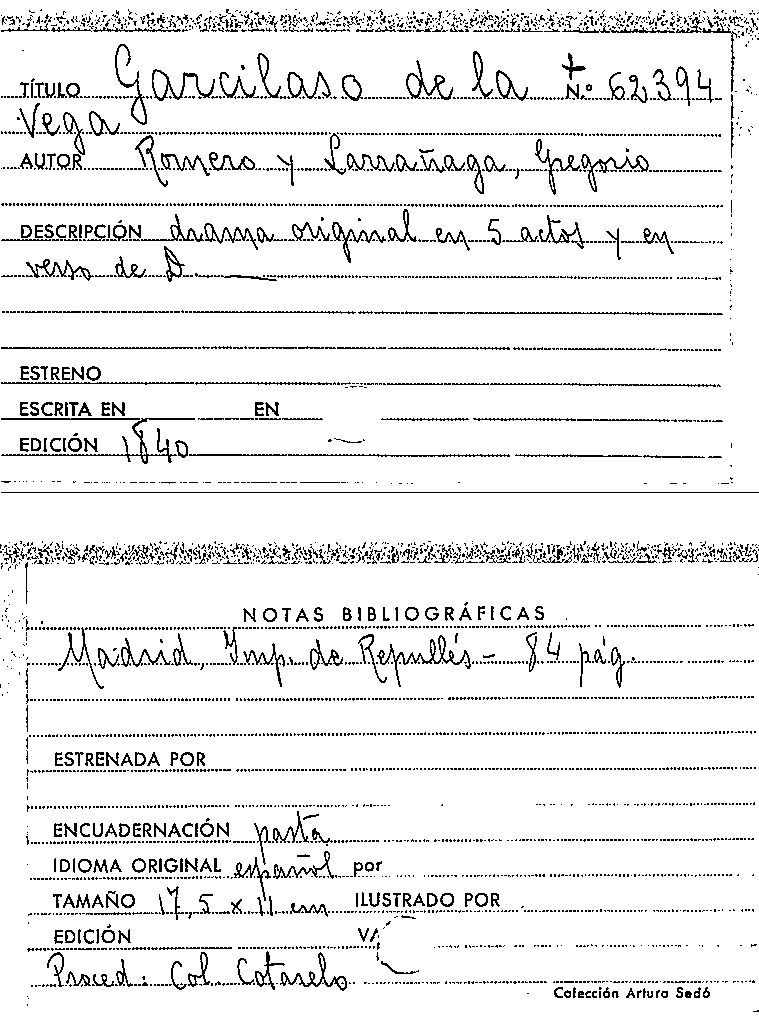 TÍTULO Garcilaso de la + N.º 62394
Vega
AUTOR Romero y Larrañaga, Gregorio
DESCRIPCIÓN drama original en 5 actos y en
verso de D. ———
ESTRENO
ESCRITA EN EN
EDICIÓN 1840
NOTAS BIBLIOGRÁFICAS
Madrid, Imp. de Repullés - 84 pág.
ESTRENADA POR
ENCUADERNACIÓN pasta
IDIOMA ORIGINAL español por
TAMAÑO 17,5 x 11 cm ILUSTRADO POR
EDICIÓN
Proced: Col. Cotarelo
Colección Arturo Sedó